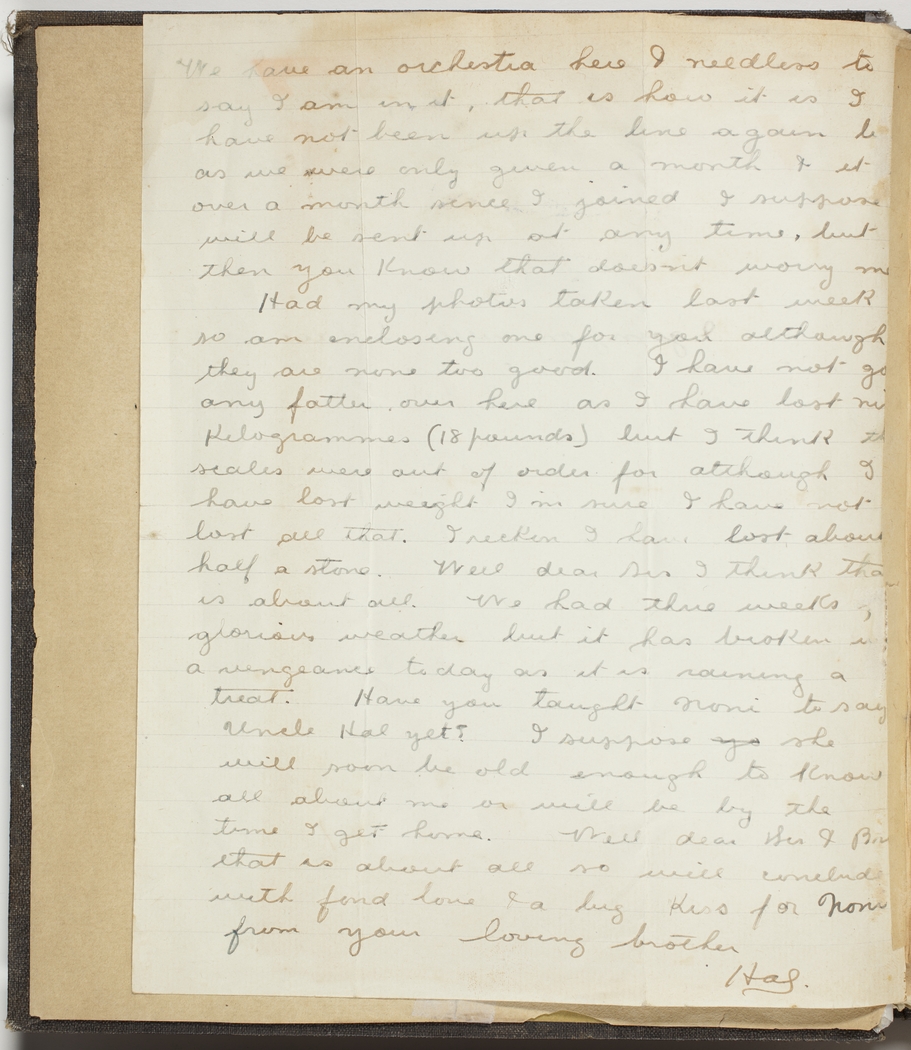 We have an orchestra here & needless to
say I am in it, that is how it is I
have not been up the line again
as we were only given a month & it
over a month since I joined I suppose
will be sent up at any time, but
then you know that doesnt worry me
Had my photos taken last week
so am enclosing one for you although
they are none too good. I have not
any fatter over here as I have lost
Kilogrammes (18 pounds) but I think
scales were out of order for although I
have lost weight I'm sure I have not
lost all that. I reckon I have lost about
half a stone. Well dear Sis I think tha
is about all. We had three weeks
glorious weather but it has broken
a vengeance today as it is raining a
treat. Have you taught Noni to say
Uncle Hal yet? I suppose she
will soon be old enough to know
all about me or will be by the
time I get home. Well dear Sis &
that is about all so will conclude
with fond love & a big Kiss for Noni
from your loving brother
Hal.